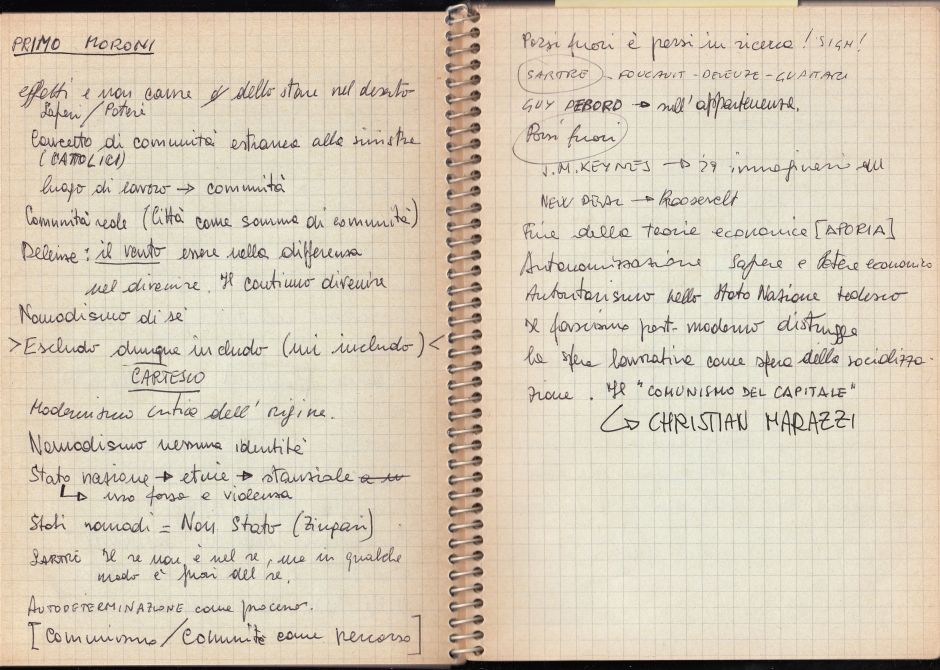 PRIMO MORONI
effetti e non carne dello stare nel deserto
Saperi / Poteri
Concetto di comunità estranea alla sinistra
(CATTOLICI)
luogo di lavoro → comunità
Comunità reale (Città come somma di comunità)
Deleuze: il vento essere nella differenza
nel divenire. Il continuo divenire
Nomadismo di sé
> Escludo dunque includo (mi includo) <
CARTESIO
Modernismo critica dell'origine.
Nomadismo nessuna identità
Stato nazione → etnie → stanziale
↳ uso forza e violenza
Stati nomadi = Non Stato (Zingari)
SARTRE Il se non è nel se, ma in qualche
modo è fuori del se.
AUTODETERMINAZIONE come processo.
[Comunismo / Comunità come percorso]
Porsi fuori è porsi in ricerca! SIGH!
SARTRE - FOUCAULT - DELEUZE - GUATTARI
GUY DEBORD → sull'appartenenza.
Porsi fuori
J.M. KEYNES → 29 immaginari sul
NEW DEAL → Roosevelt
Fine della teoria economica [APORIA]
Autonomizzazione Sapere e Potere economico
Autoritarismo nello Stato Nazione tedesco
Il fascismo post-moderno distrugge
la sfera lavorativa come sfera della socializza-
zione. Il "COMUNISMO DEL CAPITALE"
↳ CHRISTIAN MARAZZI